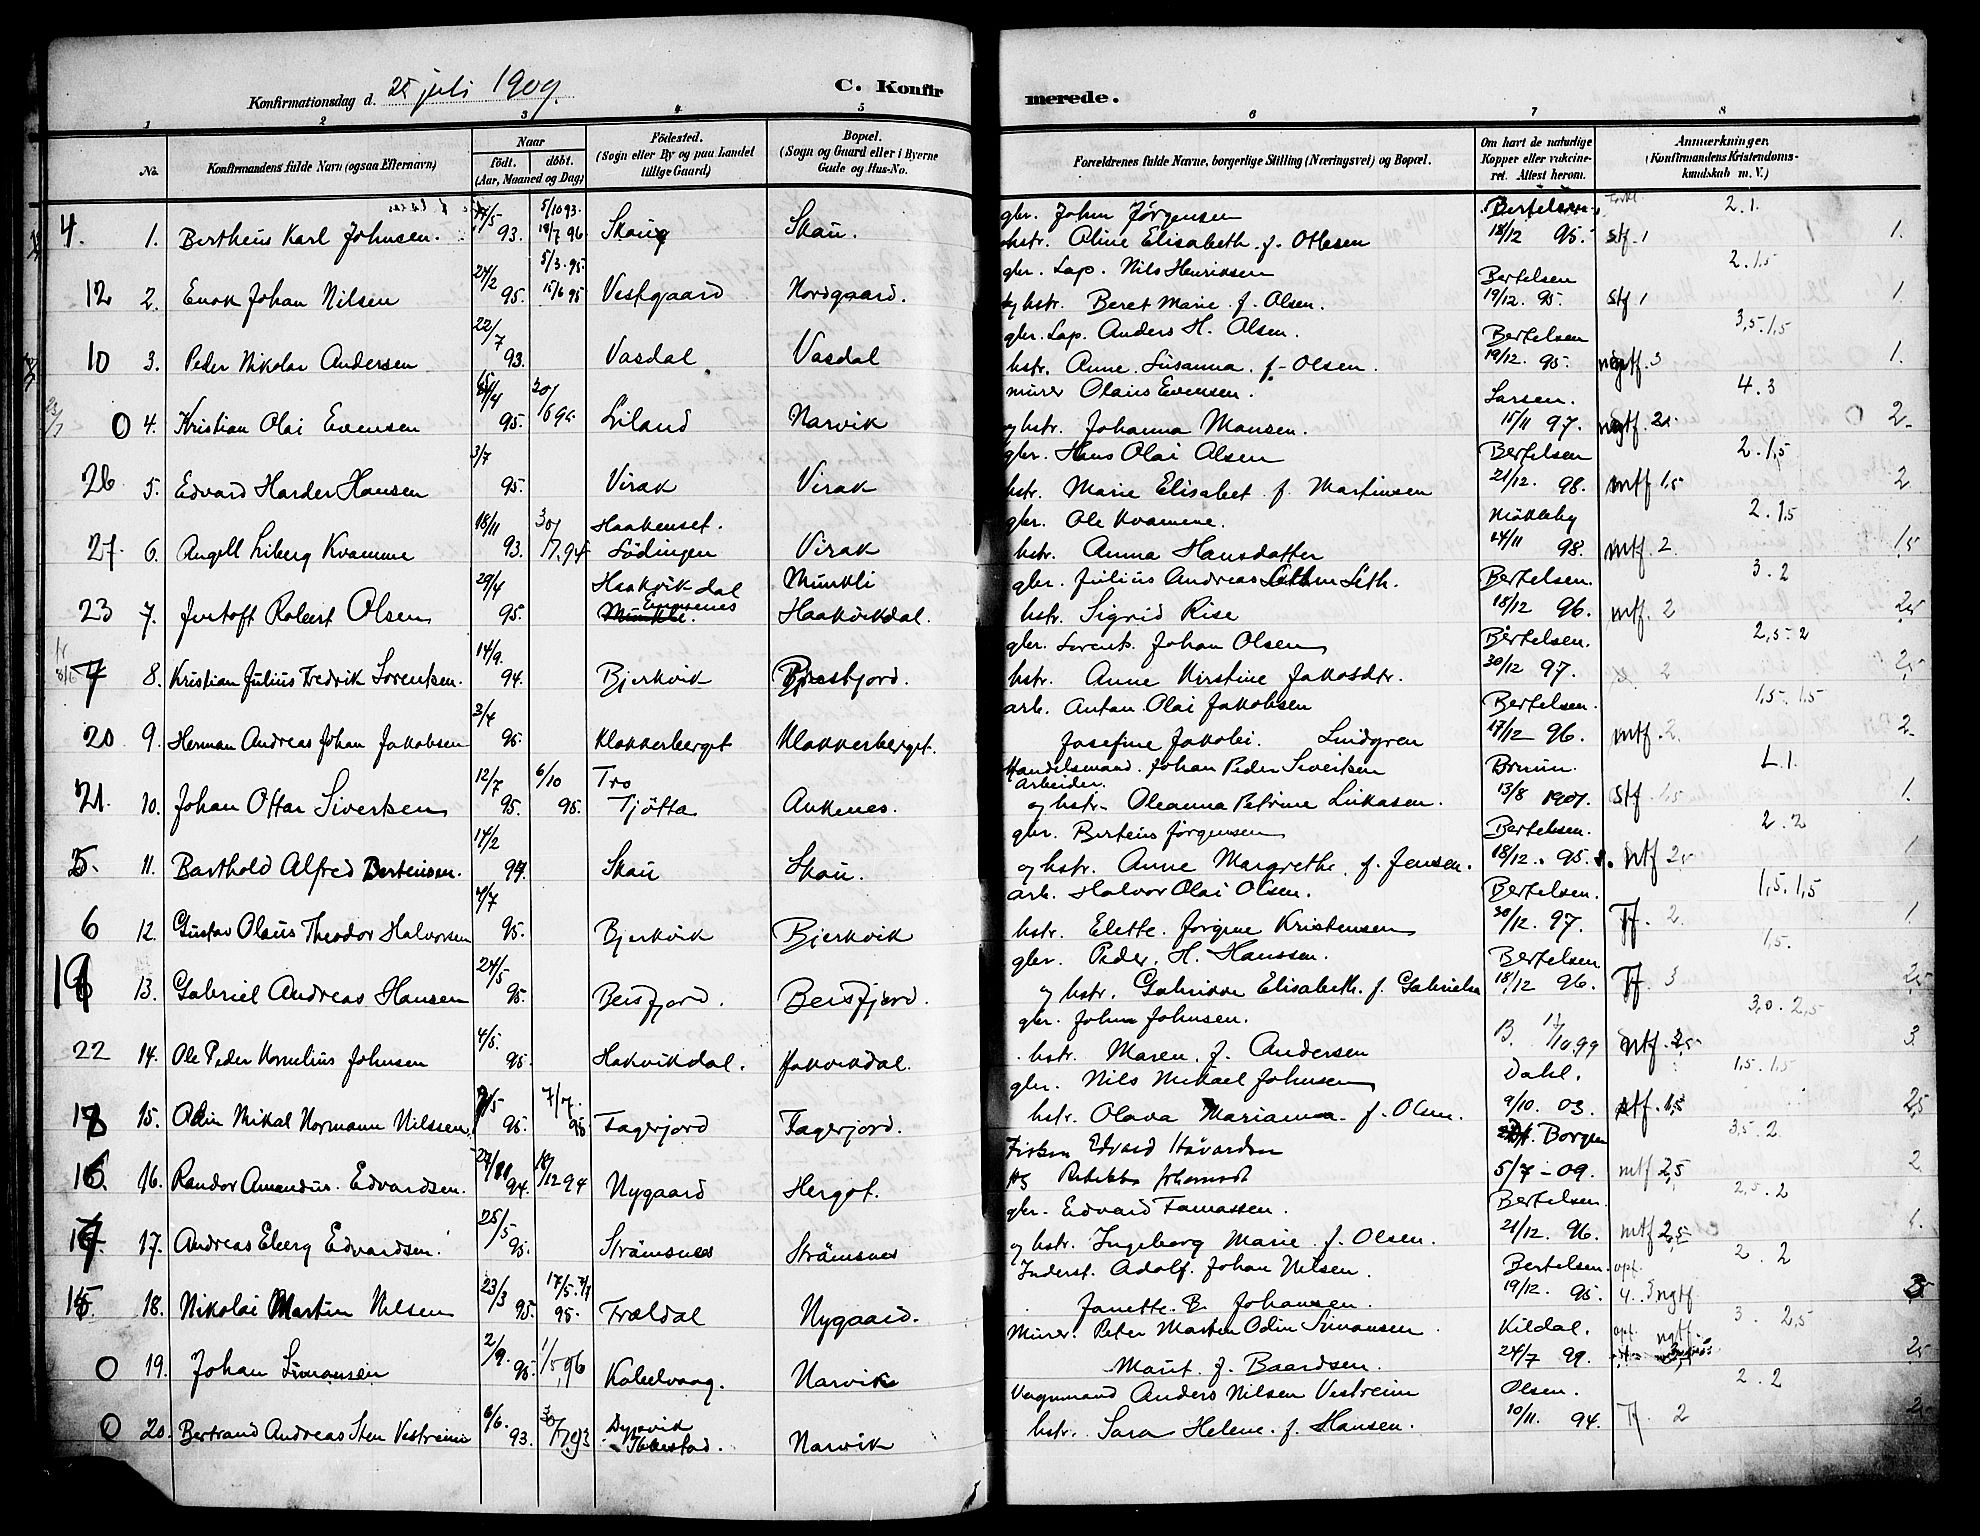 Konfirmationsdag d. 25 juli 1909.
C. Konfirmerede.
1 2 3 4 5 6 7 8
No.
Konfirmandens fulde Navn (ogsaa Efternavn)
Naar
födt. döbt.
(Aar, Maaned og Dag)
Födested.
(Sogn eller By og paa Landet
tillige Gaard)
Bopæl.
(Sogn og Gaard eller i Byerne
Gade og Hus-No.
Forældrenes fulde Navne, borgerlige Stilling (Næringsvei) og Bopæl.
Om havt de naturlige
Kopper eller vakcine-
ret. Attest herom.
Anmærkninger,
(Konfirmandens Kristendoms-
kundskab m. V.)
4. 1. Bertheus Karl Johnsen. 93. 5/10 93. 18/7 96 Skaug Skau. gbr. John Jørgensen
hstr. Aline Elisabeth f. Ottesen Bertelsen. 18/12 95. Stf. 1 2. 1. 1.
12 2. Enok Johan Nilsen 27/2 95. 5/3. 95. 15/6 95 Vestgaard Nordgaard. gbr. Lap. Nils Henriksen
og hstr. Beret Marie f. Olsen. Bertelsen 19/12. 95. Stf 1 2. 1,5 1.
10 3. Peder Nikolai Andersen 22/7 93. Vasdal Vasdal gbr. Lap. Anders H. Olsen.
hstr. Anne Susanna f. Olsen. Bertelsen 19/12. 95. ngtf. 3 3,5. 1,5 1.
0 4. Kristian Olai Evensen 95. Liland Narvik murer Olaus Evensen.
og hstr. Johanna Monsen. Larsen. 15/11 97. ngtf. 4. 3 2.
26 5. Edvard Harder Hansen 3/7 95. Virak Virak gbr. Hans Olai Olsen
hstr. Marie Elisabet f. Martinsen Bertelsen 21/12. 98. mtf 1,5 2. 1,5 2
27. 6. Angell Liberg Kvamme 18/11 93. 30/7. 94 Haakenset. Lødingen Virak gbr. Ole Kvamme.
hstr. Anna Hansdatter Mökleby 24/11 98. mtf. 2. 2. 1,5 1,5
23 7. Jentoft Robert Olsen 29/4 95. Haakvikdal Emmenes Munkli Haakvikdal. gbr. Julius Andreas Seth.
hstr. Sigrid Rise Bertelsen. 18/12 96. mtf. 2 3. 2 2,5
7 8. Kristian Julius Fredrik Lorentsen. 14/9. 94. Bjerkvik gbr. Lorents Johan Olsen
hstr. Anne Kirstine Jakobsdtr. Bertelsen. 30/12 97. 2 2,5. 2 2,5
20 9. Herman Andreas Johan Jakobsen 3/4 95. Klokkerberget Klokkerberget. arb. Anton Olai Jakobsen
Josefine Jakobi. Lindgren Bertelsen. 17/12 96. mtf. 2. 1,5. 1,5 2.
21. 10. Johan Ottar Sivertsen 12/7 95. 6/10 95. Tro Tjötta Ankenes. Handelsmand. Johan Peder Sivertsen
Arbeider.
og hstr. Oleanna Petrine Lukasen. Bruun. 13/8 1901. Stf 1,5 1.
5. 11. Barthold Alfred Berteusen. 14/2 94. Skau Skau. gbr. Berteus Jørgensen
og hstr. Anne Margrethe f. Jensen. Bertelsen. 18/12. 95. mtf 2,5 2. 2 1
6 12. Gustav Olaus Theodor Halvorsen 4/7 95. Bjerkvik Bjerkvik arb. Halvor Olai Olsen.
hstr. Elette Jørgine Kristensen Bertelsen. 30/12. 97. Tf. 2. 1,5. 1,5 1.
19 13. Gabriel Andreas Hansen 24/5 95. Beisfjord. Beisfjord. gbr. Peder H. Hanssen.
og hstr. Gabrikke Elisabeth f. Gabrielsen Bertelsen 18/12 96. Tf. 3 1,5. 2,5
22 14. Ole Peder Kornelius Johnsen 4/5. 95. Hakvikdal. Hakvikdal. gbr. John Johnsen.
hstr. Maren f. Andersen B. 11/10 99 mtf. 3,0. 2,5 3.
18 15. Odin Mikal Normann Nilssen. 95. 7/7. 95 Fagerjord Fagerjord. gbr. Nils Mikael Johnsen
hstr. Olava Marianna f. Olsen. Dahl. 9/10. 03. mtf. 1,5 1,5. 1,5 2,5
16. 16. Randor Amandus Edvardsen. 94. 18/12 94 Nygaard Hergot. Fisker Edvard Hövardsen
Borgen 5/7 - 09. mtf 2,5 3,5. 2. 2.
17. 17. Andreas Eberg Edvardsen. 25/5 95. Strömsnes Strömsnes gbr. Edvard Tomassen.
og hstr. Ingeborg Marie f. Olsen. Bertelsen. 21/12. 96. mtf 2,5 2,5. 2 1.
15. 18. Nikolai Martin Nilsen 23/3 95. 17/5. 95. Trældal Nygaard. Inderst. Adolf Johan Nilsen.
Janette B. Johansen. Bertelsen. 19/12. 95. opf. ngtf. 2. 2 3
0 19. Johan Simonsen 2/9. 95. 1/5, 96 Kabelvaag. Narvik Murer. Peter Morten Odin Simonsen
Marit f. Baardsen. Kildal. 24/7 99. opf. ngtf. 3. 2,5 2,5
0 20. Bertrand Andreas Sten Vestreim 6/6. 93. 30/7 93 Dyrvik Ibbestad. Narvik Vognmand Anders Nilsen Vestreim
hstr. Sara Helene f. Hansen. Olsen. 10/11. 94. Tf. 2 2. 2